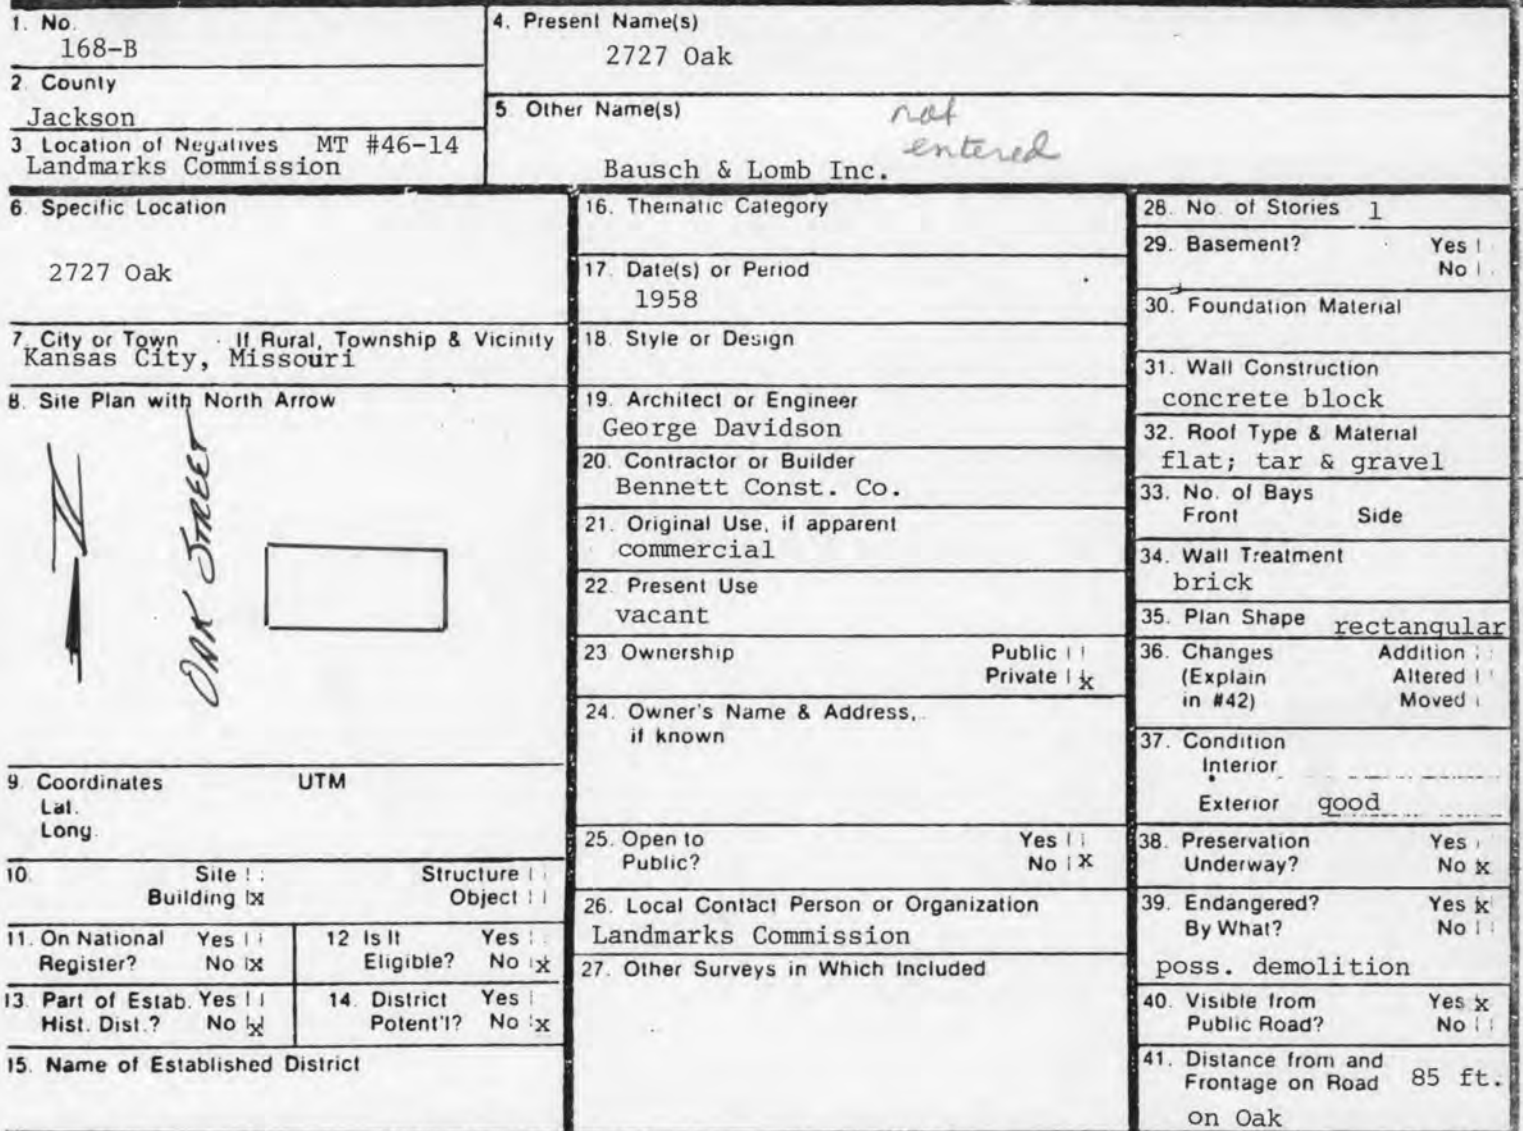 1. No.
168-B
2. County
Jackson
3 Location of Negatives MT #46-14
Landmarks Commission
4. Present Name(s)
2727 Oak
5 Other Name(s)
not
entered
Bausch & Lomb Inc.
6. Specific Location
2727 Oak
7. City or Town If Rural, Township & Vicinity
Kansas City, Missouri
8. Site Plan with North Arrow
N
OAK STREET
9. Coordinates UTM
Lat.
Long.
10. Site Structure
Building x Object
11. On National Yes
Register? No x
12 Is It Yes
Eligible? No x
13. Part of Estab. Yes
Hist. Dist.? No x
14. District Yes
Potent'l? No x
15. Name of Established District
16. Thematic Category
17. Date(s) or Period
1958
18. Style or Design
19. Architect or Engineer
George Davidson
20. Contractor or Builder
Bennett Const. Co.
21. Original Use, if apparent
commercial
22. Present Use
vacant
23 Ownership Public
Private x
24. Owner's Name & Address,
if known
25. Open to Yes
Public? No x
26. Local Contact Person or Organization
Landmarks Commission
27. Other Surveys in Which Included
28. No. of Stories 1
29. Basement? Yes
No
30. Foundation Material
31. Wall Construction
concrete block
32. Roof Type & Material
flat; tar & gravel
33. No. of Bays
Front Side
34. Wall Treatment
brick
35. Plan Shape rectangular
36. Changes Addition
(Explain Altered
in #42) Moved
37. Condition
Interior
Exterior good
38. Preservation Yes
Underway? No x
39. Endangered? Yes x
By What? No
poss. demolition
40. Visible from Yes x
Public Road? No
41. Distance from and
Frontage on Road 85 ft.
on Oak